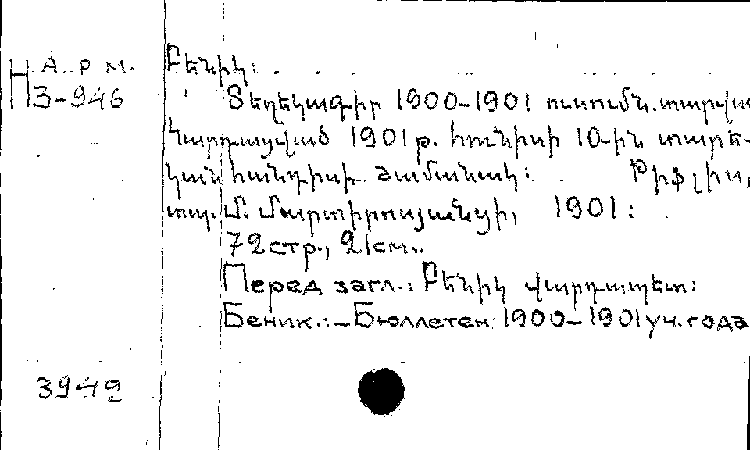 Арм. Բենիկ։
Н
3-946 Տեղեկագիր 1900-1901 ուսումն. տարվա
Կարդացված 1901 թ. հունիսի 10-ին տարե-
կան հանդիսի ժամանակ։ Թիֆլիս,
տպ. Մ. Մարտիրոսյանցի, 1901։
72 стр., 21 см..
Перед загл.: Բենիկ վարդապետ։
Беник.:-Бюллетен 1900-1901 уч. года
3949